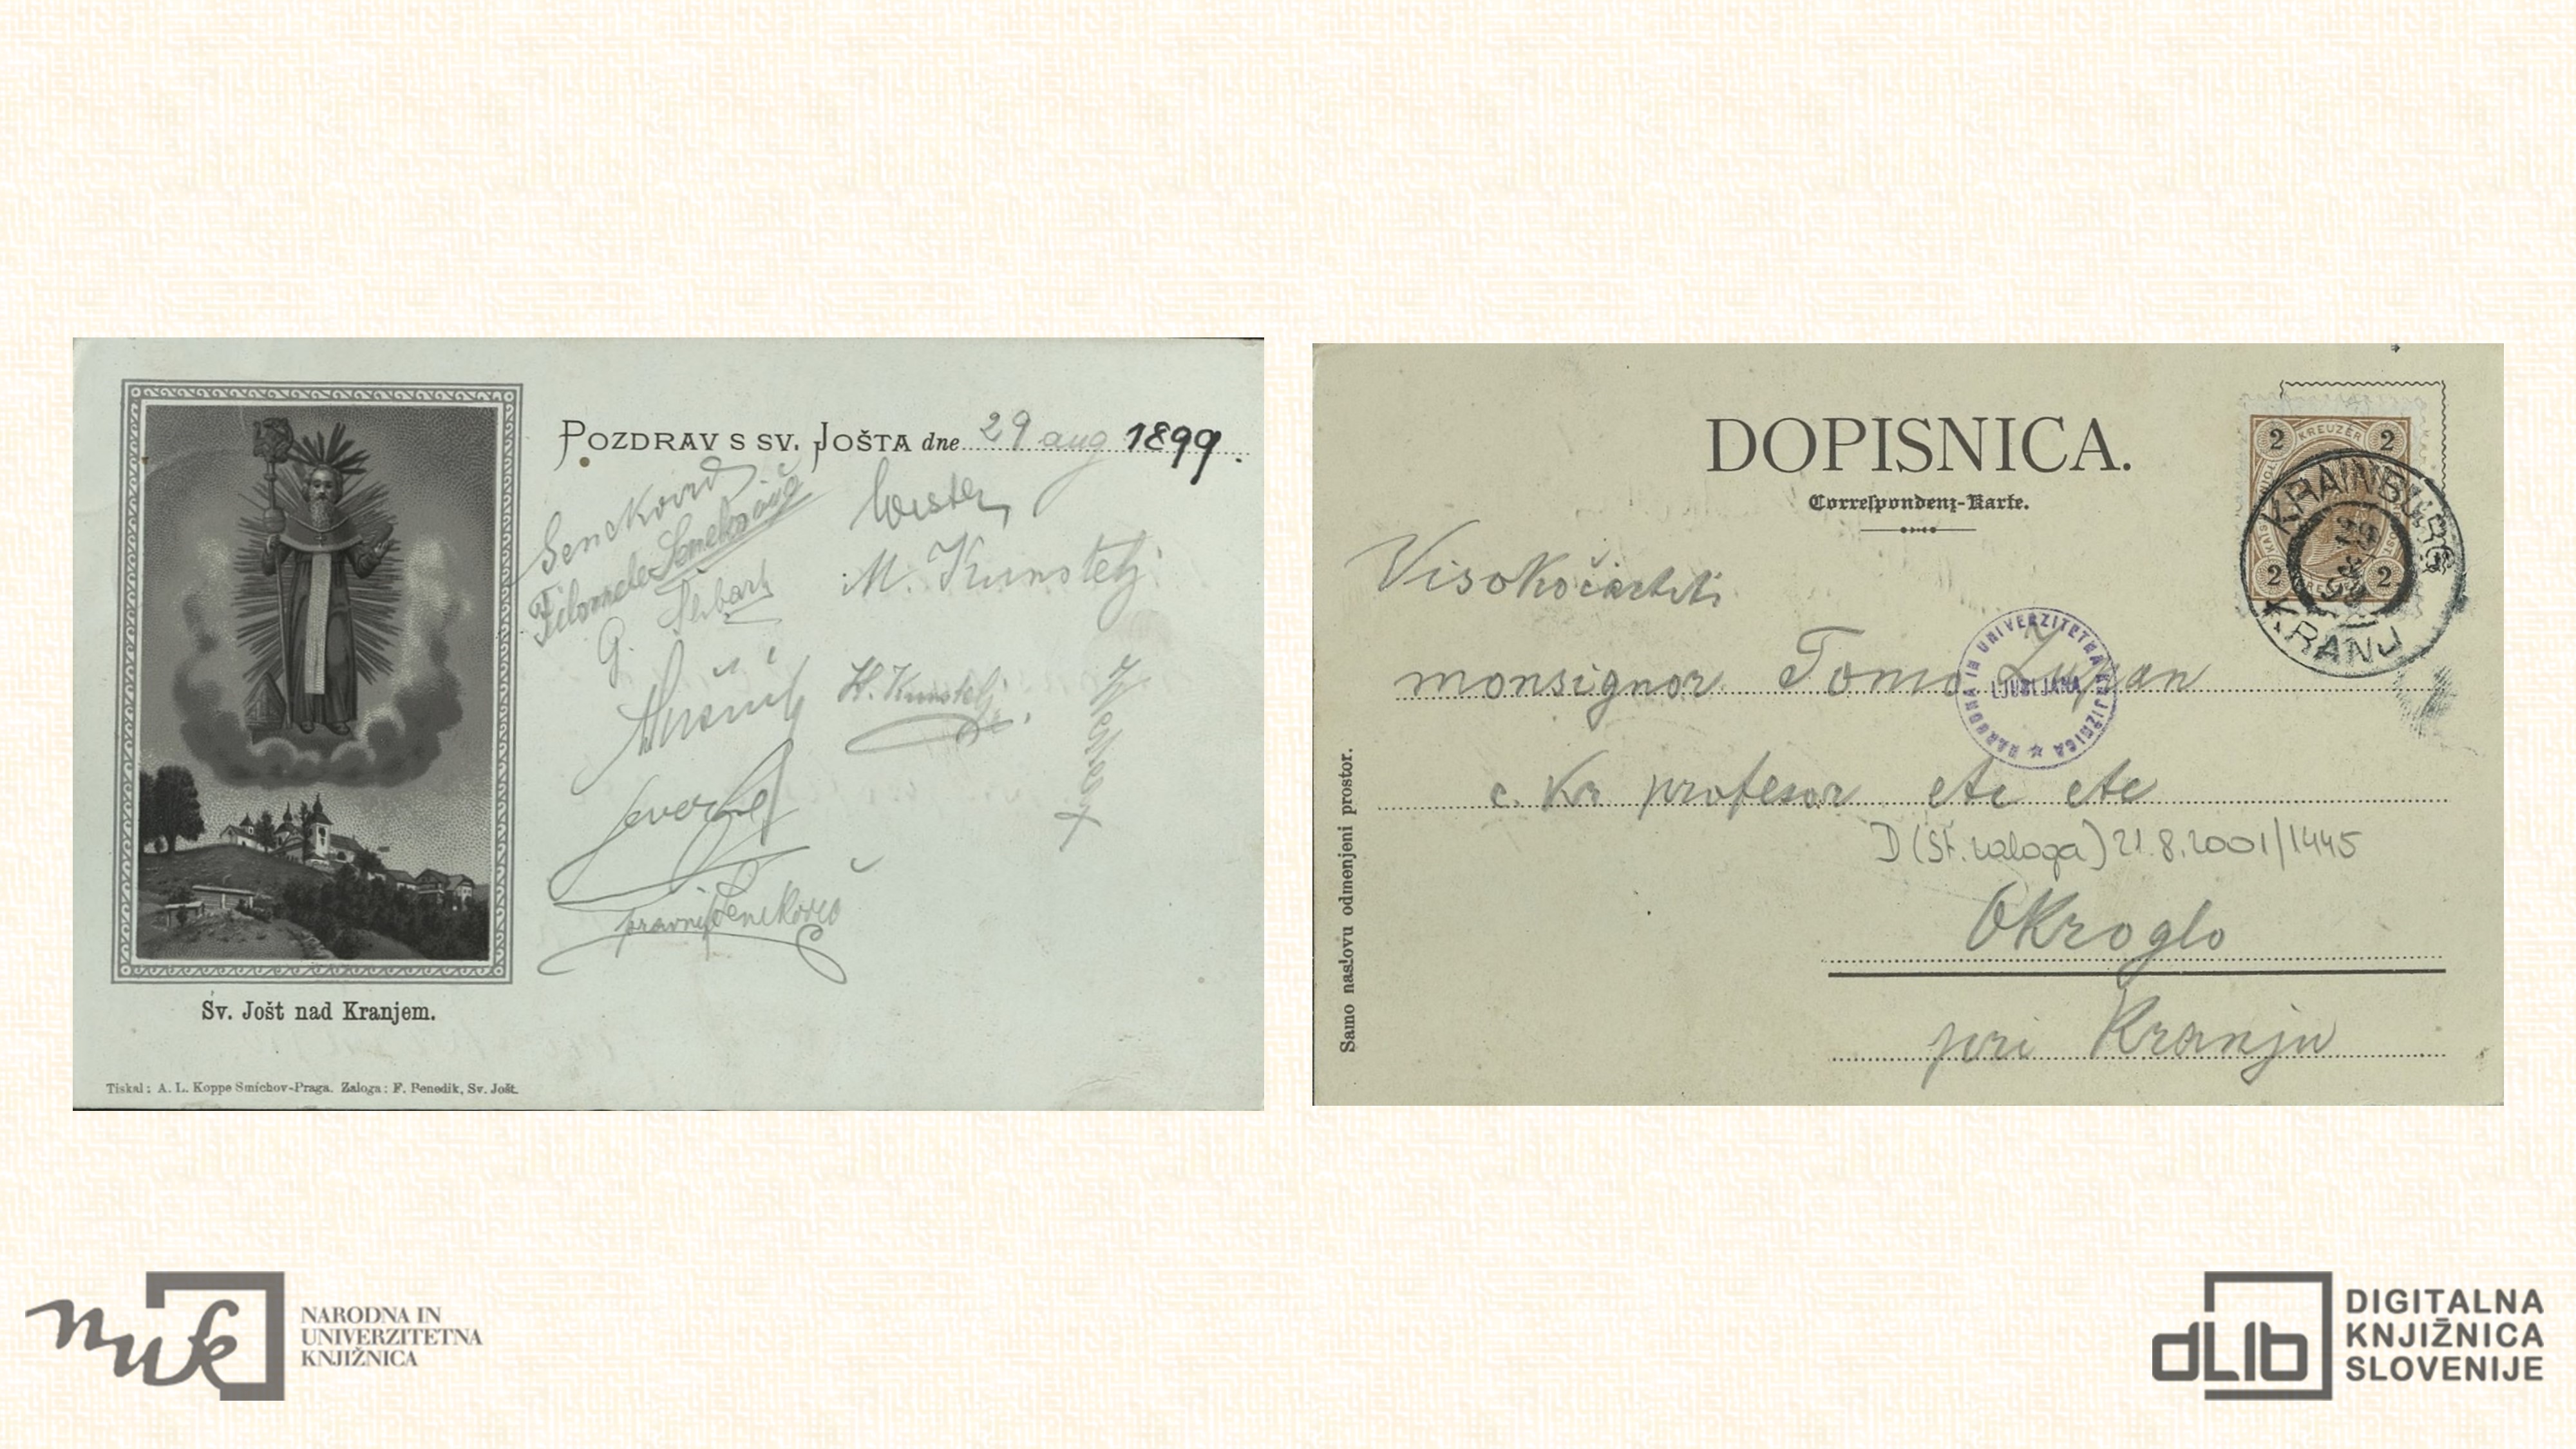 POZDRAV S SV. JOŠTA dne 29 aug 1899.
Senekovič
Filomela Senekovič
G. Šlibar
M. Kunstelj
H. Kunstelj
pravnik Senekovič
Sv. Jošt nad Kranjem.
Tiskal: A. L. Koppe Smíchov-Praga. Zaloga: F. Penedik, Sv. Jošt.
DOPISNICA.
Correspondenz-Karte.
2 KREUZER 2
2 2
KRAINBURG
29
8
99
KRANJ
Visokočastiti
monsignor Tomo Zupan
NARODNA IN UNIVERZITETNA KNJIŽNICA
LJUBLJANA
c. kr profesor etc etc
D (st. zaloga) 21.8.2001/1445
Okroglo
pri Kranju
Samo naslovu odmenjeni prostor.
nuk
NARODNA IN
UNIVERZITETNA
KNJIŽNICA
dLib
DIGITALNA
KNJIŽNICA
SLOVENIJE